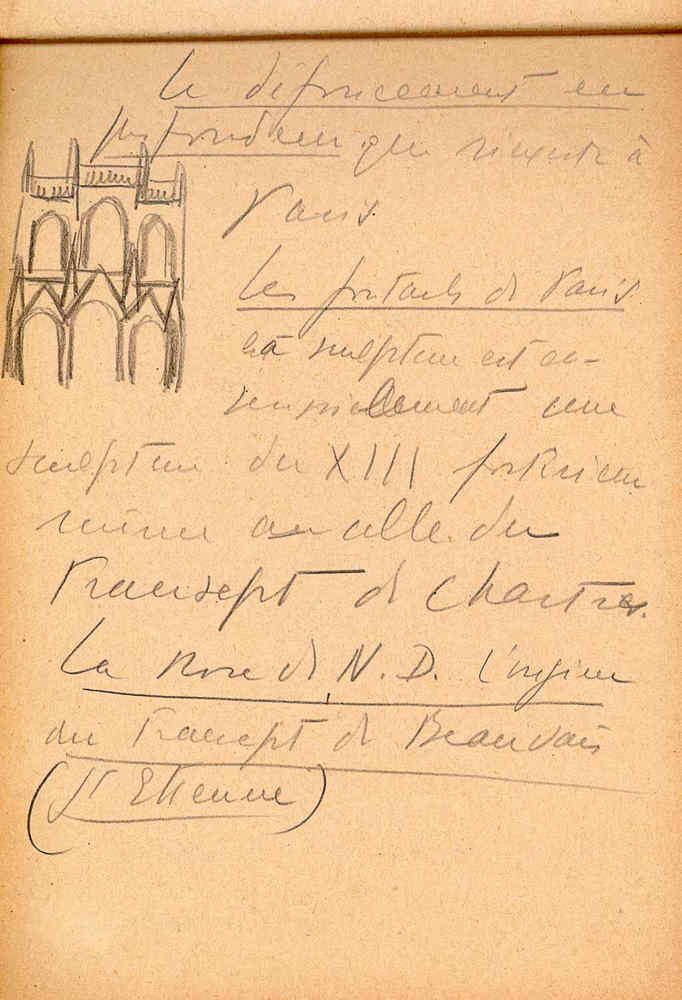 Le défoncement en
profondeur que n'existe à
Paris.
Les portails de Paris
La sculpture est es-
sentiellement une
sculpture du XIII
même à celle du
transept de Chartres.
La Rose de N. D. l'origine
du transept de Beauvais
(St Etienne)